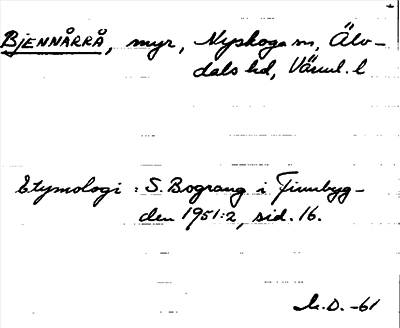 BJENNÅRRÅ, myr, Nyskoga sn, Älv-
dals hd, Värml. l
Etymologi: S. Bograng i Finnbyg-
den 1951:2, sid. 16.
D. -61